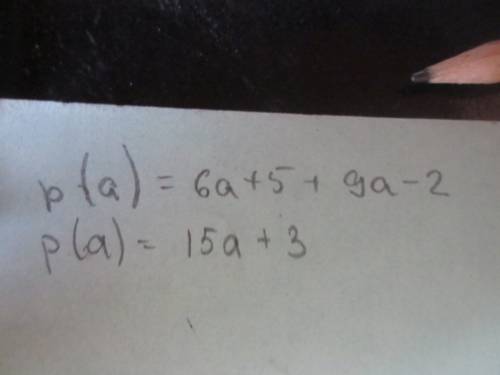 p(a) = 6a+5 + 9a-2
p(a) = 15a + 3